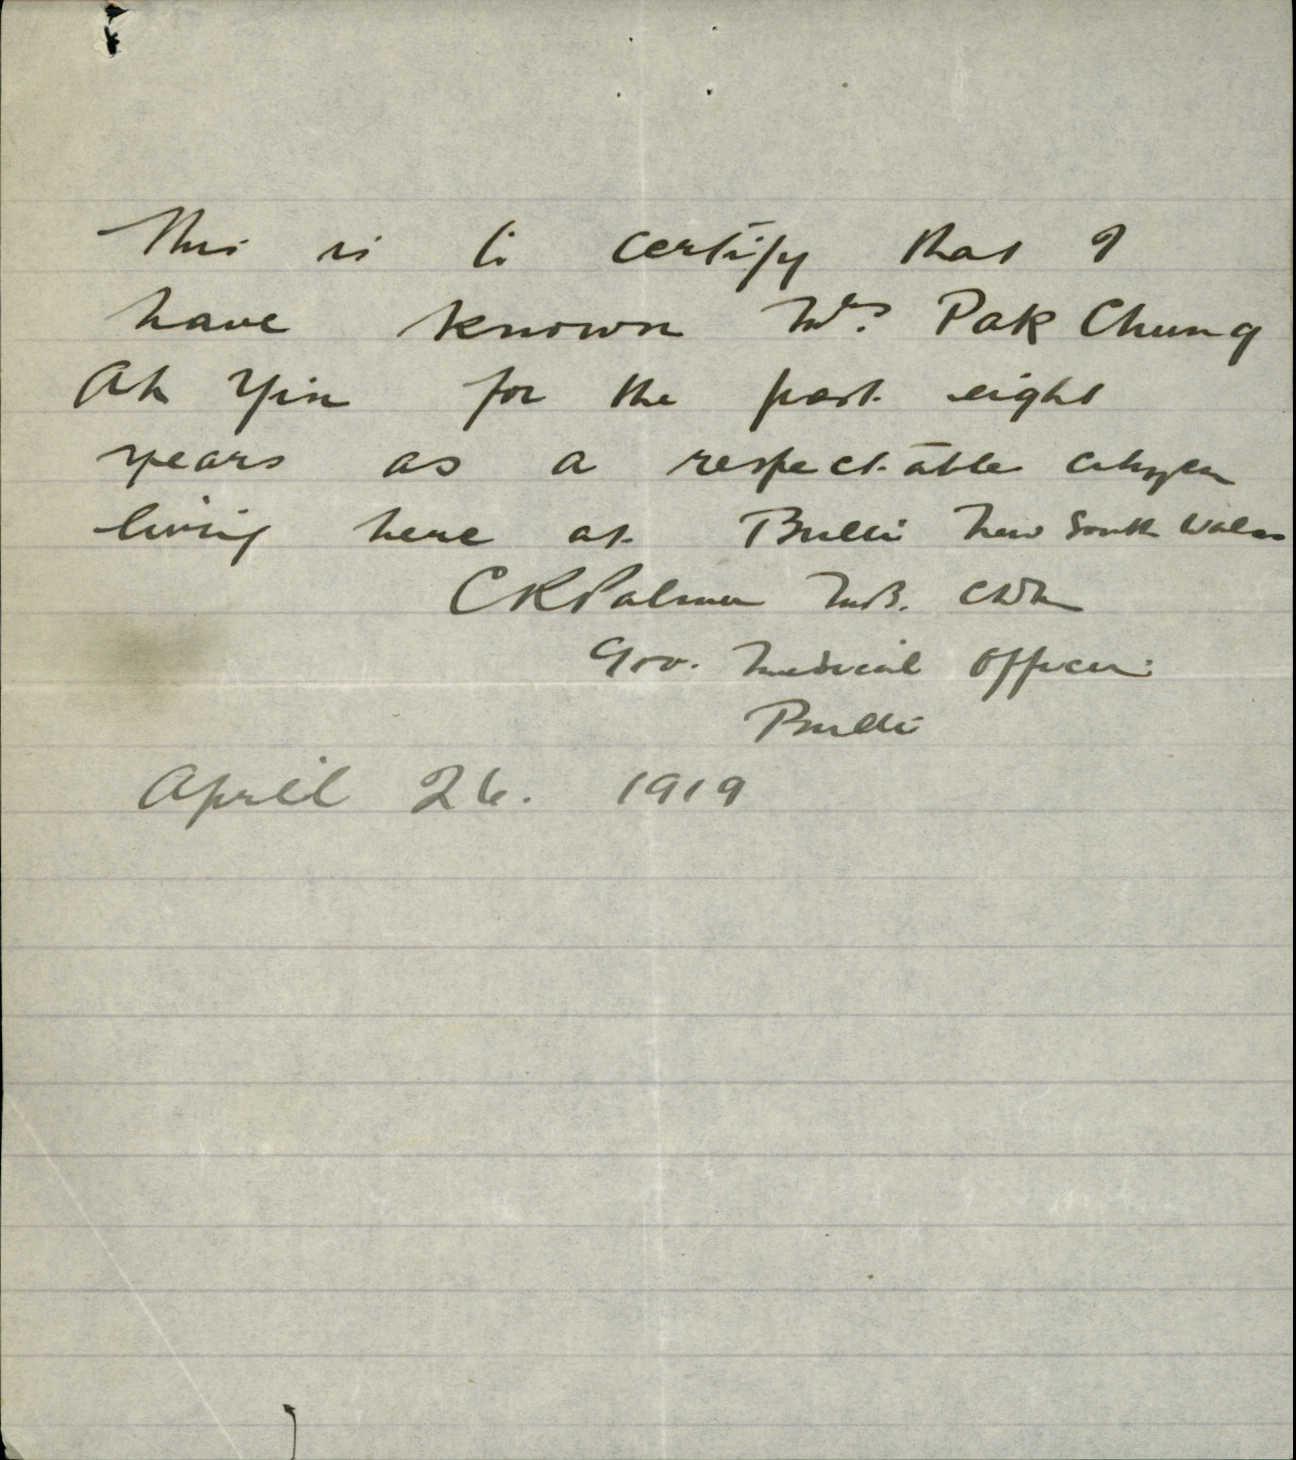 This is to certify that I
have known Mrs. Pak Chung
Ah Yin for the past eight
years as a respectable citizen
living here at Bulli New South Wales
C R Palmer M.B. Ch M
Gov. Medical Officer
Bulli
April 26. 1919